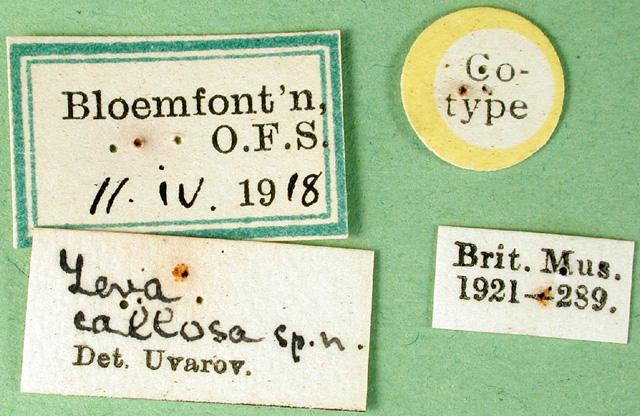 Bloemfont'n,
O.F.S.
11. iv. 1918
Co-
type
Leva
callosa sp.n.
Det. Uvarov.
Brit. Mus.
1921-289.